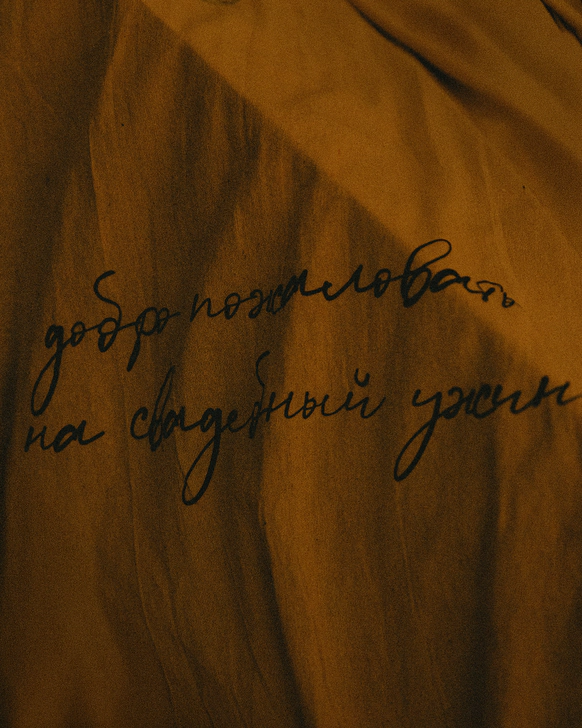 добро пожаловать
на свадебный ужин